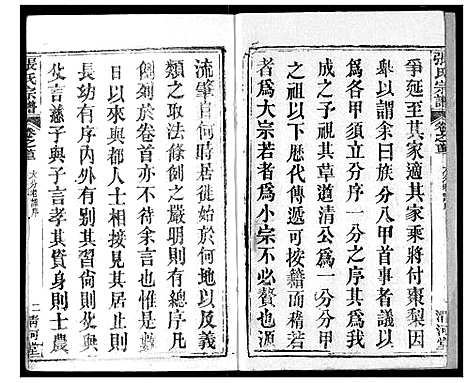 張氏宗譜
卷之首
清河堂
爭延至其家適其家乘將付棗梨因
舉以謂余曰族分八甲首事者議以
爲各甲須立分序一分序其爲我
成之予視其草道清公爲一分分房
之祖以下歷代傳遞可按籍而稽若
者爲大宗若者爲小宗不必贅也源
流肇自何時居徙始於何地以及義
類之取法條例之嚴明則有總序凡
例列於卷首亦不待余言也惟念
來以來與都人士相接見其居止則
長幼有序近其習尚則攵與
攵言慈子與子言孝其資身則士農
張氏宗譜
卷之首
二
清河堂